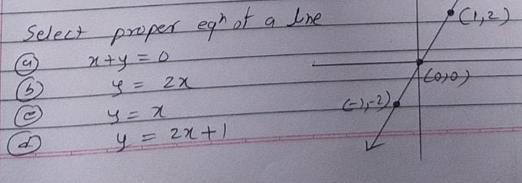 Select proper eqn of a line
(a) x+y = 0
(b) y = 2x
(c) y = x
(d) y = 2x+1
(1,2)
(0,0)
(-1,-2)